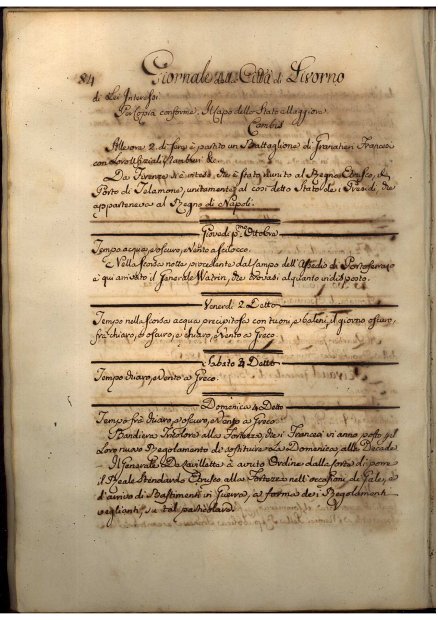 84 Giornale della Città di Livorno
di Lei Interessi.
Per Copia conforme. Il Capo dello Stato Maggiore
Cambis
All'ore 2. di sera è partito un Battaglione di Granatieri Francesi
con loro Uffiziali, Tamburi &c.
Da Firenze si è inteso, che è stato riunito al Regno Etrusco, il
Porto di Telamone, unitamente al così detto Stato dei Presidi, che
apparteneva al Regno di Napoli.
Giovedì p.mo Ottobre
Tempo acqua, e oscuro, e Vento a Scilocco.
Nella scorsa notte, procedente dal Campo dell'Assedio di Portoferraio
è quì arrivato il Generale Watrin, che trovasi alquanto indisposto.
Venerdì 2 Detto
Tempo nella scorsa acqua precipitosa con tuoni, e baleni, il giorno oscuro,
fra chiaro, e oscuro, e chiaro, e Vento a Greco.
Sabato 3 Detto
Tempo chiaro, e Vento a Greco.
Domenica 4 Detto
Tempo fra chiaro, e oscuro, e Vento a Greco.
Bandiera Tricolore alla Fortezza, che i Francesi vi anno posto pel
Loro nuovo Regolamento di sostituire La Domenica, alle Decade
Il Generale La Vaillette à avuto Ordine dalla Corte di porre
il Reale Stendardo Etrusco alla Fortezza nell'occasioni di Gale, e
d'arrivo di Bastimenti in Guerra, a forma dei Regolamenti
veglianti, su tal particolare.